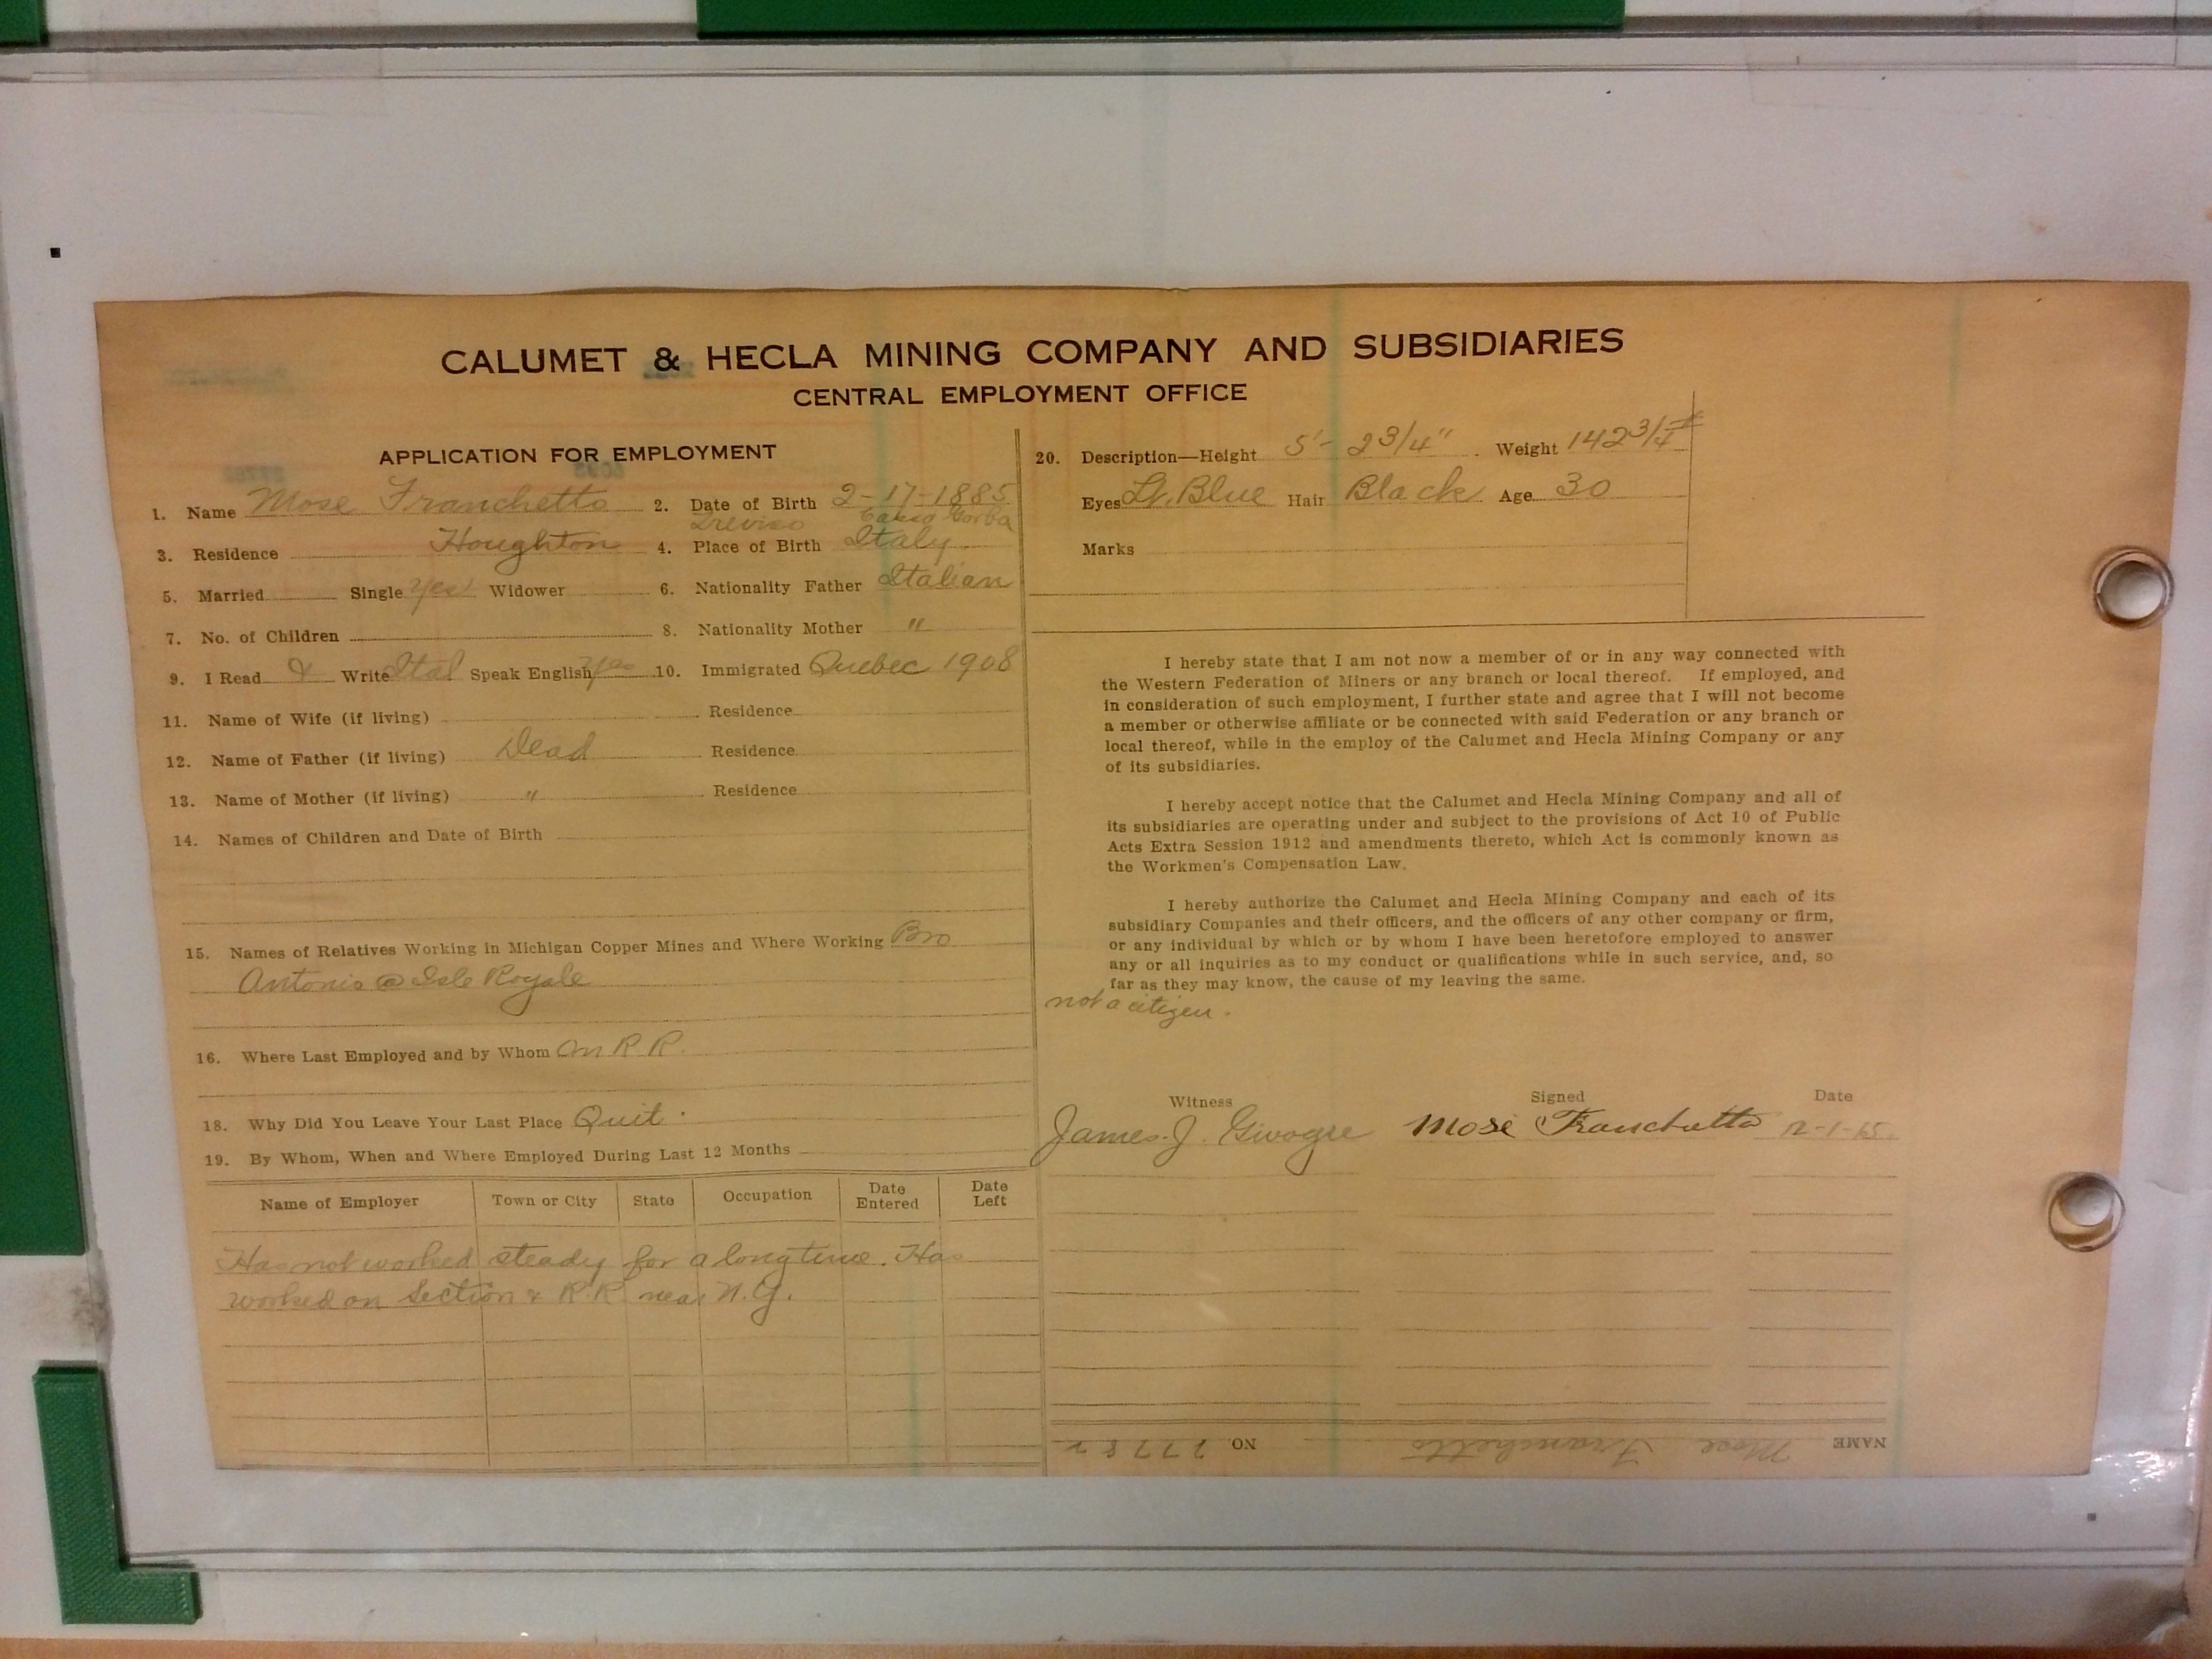 CALUMET & HECLA MINING COMPANY AND SUBSIDIARIES
CENTRAL EMPLOYMENT OFFICE
APPLICATION FOR EMPLOYMENT
1. Name Mose Franchetto 2. Date of Birth 2-17-1885
Treviso
3. Residence Houghton 4. Place of Birth Italy
5. Married Single yes Widower 6. Nationality Father Italian
7. No. of Children 8. Nationality Mother "
9. I Read & Write Ital Speak English yes 10. Immigrated Quebec 1908
11. Name of Wife (if living) Residence
12. Name of Father (if living) Dead Residence
13. Name of Mother (if living) " Residence
14. Names of Children and Date of Birth
15. Names of Relatives Working in Michigan Copper Mines and Where Working Bro
Antonio @ Isle Royale
16. Where Last Employed and by Whom On R R.
18. Why Did You Leave Your Last Place Quit.
19. By Whom, When and Where Employed During Last 12 Months
Name of Employer Town or City State Occupation Date Entered Date Left
Has not worked steady for a long time. Has
worked on Section & R.R. near N.Y.
20. Description—Height 5'- 2 3/4" Weight 142 3/4 #
Eyes Lt. Blue Hair Black Age 30
Marks
I hereby state that I am not now a member of or in any way connected with
the Western Federation of Miners or any branch or local thereof. If employed, and
in consideration of such employment, I further state and agree that I will not become
a member or otherwise affiliate or be connected with said Federation or any branch or
local thereof, while in the employ of the Calumet and Hecla Mining Company or any
of its subsidiaries.
I hereby accept notice that the Calumet and Hecla Mining Company and all of
its subsidiaries are operating under and subject to the provisions of Act 10 of Public
Acts Extra Session 1912 and amendments thereto, which Act is commonly known as
the Workmen's Compensation Law.
I hereby authorize the Calumet and Hecla Mining Company and each of its
subsidiary Companies and their officers, and the officers of any other company or firm,
or any individual by which or by whom I have been heretofore employed to answer
any or all inquiries as to my conduct or qualifications while in such service, and, so
far as they may know, the cause of my leaving the same.
not a citizen.
Witness Signed Date
James J. Mose Franchetto 12-1-15.
NAME Mose Franchetto NO. 2778